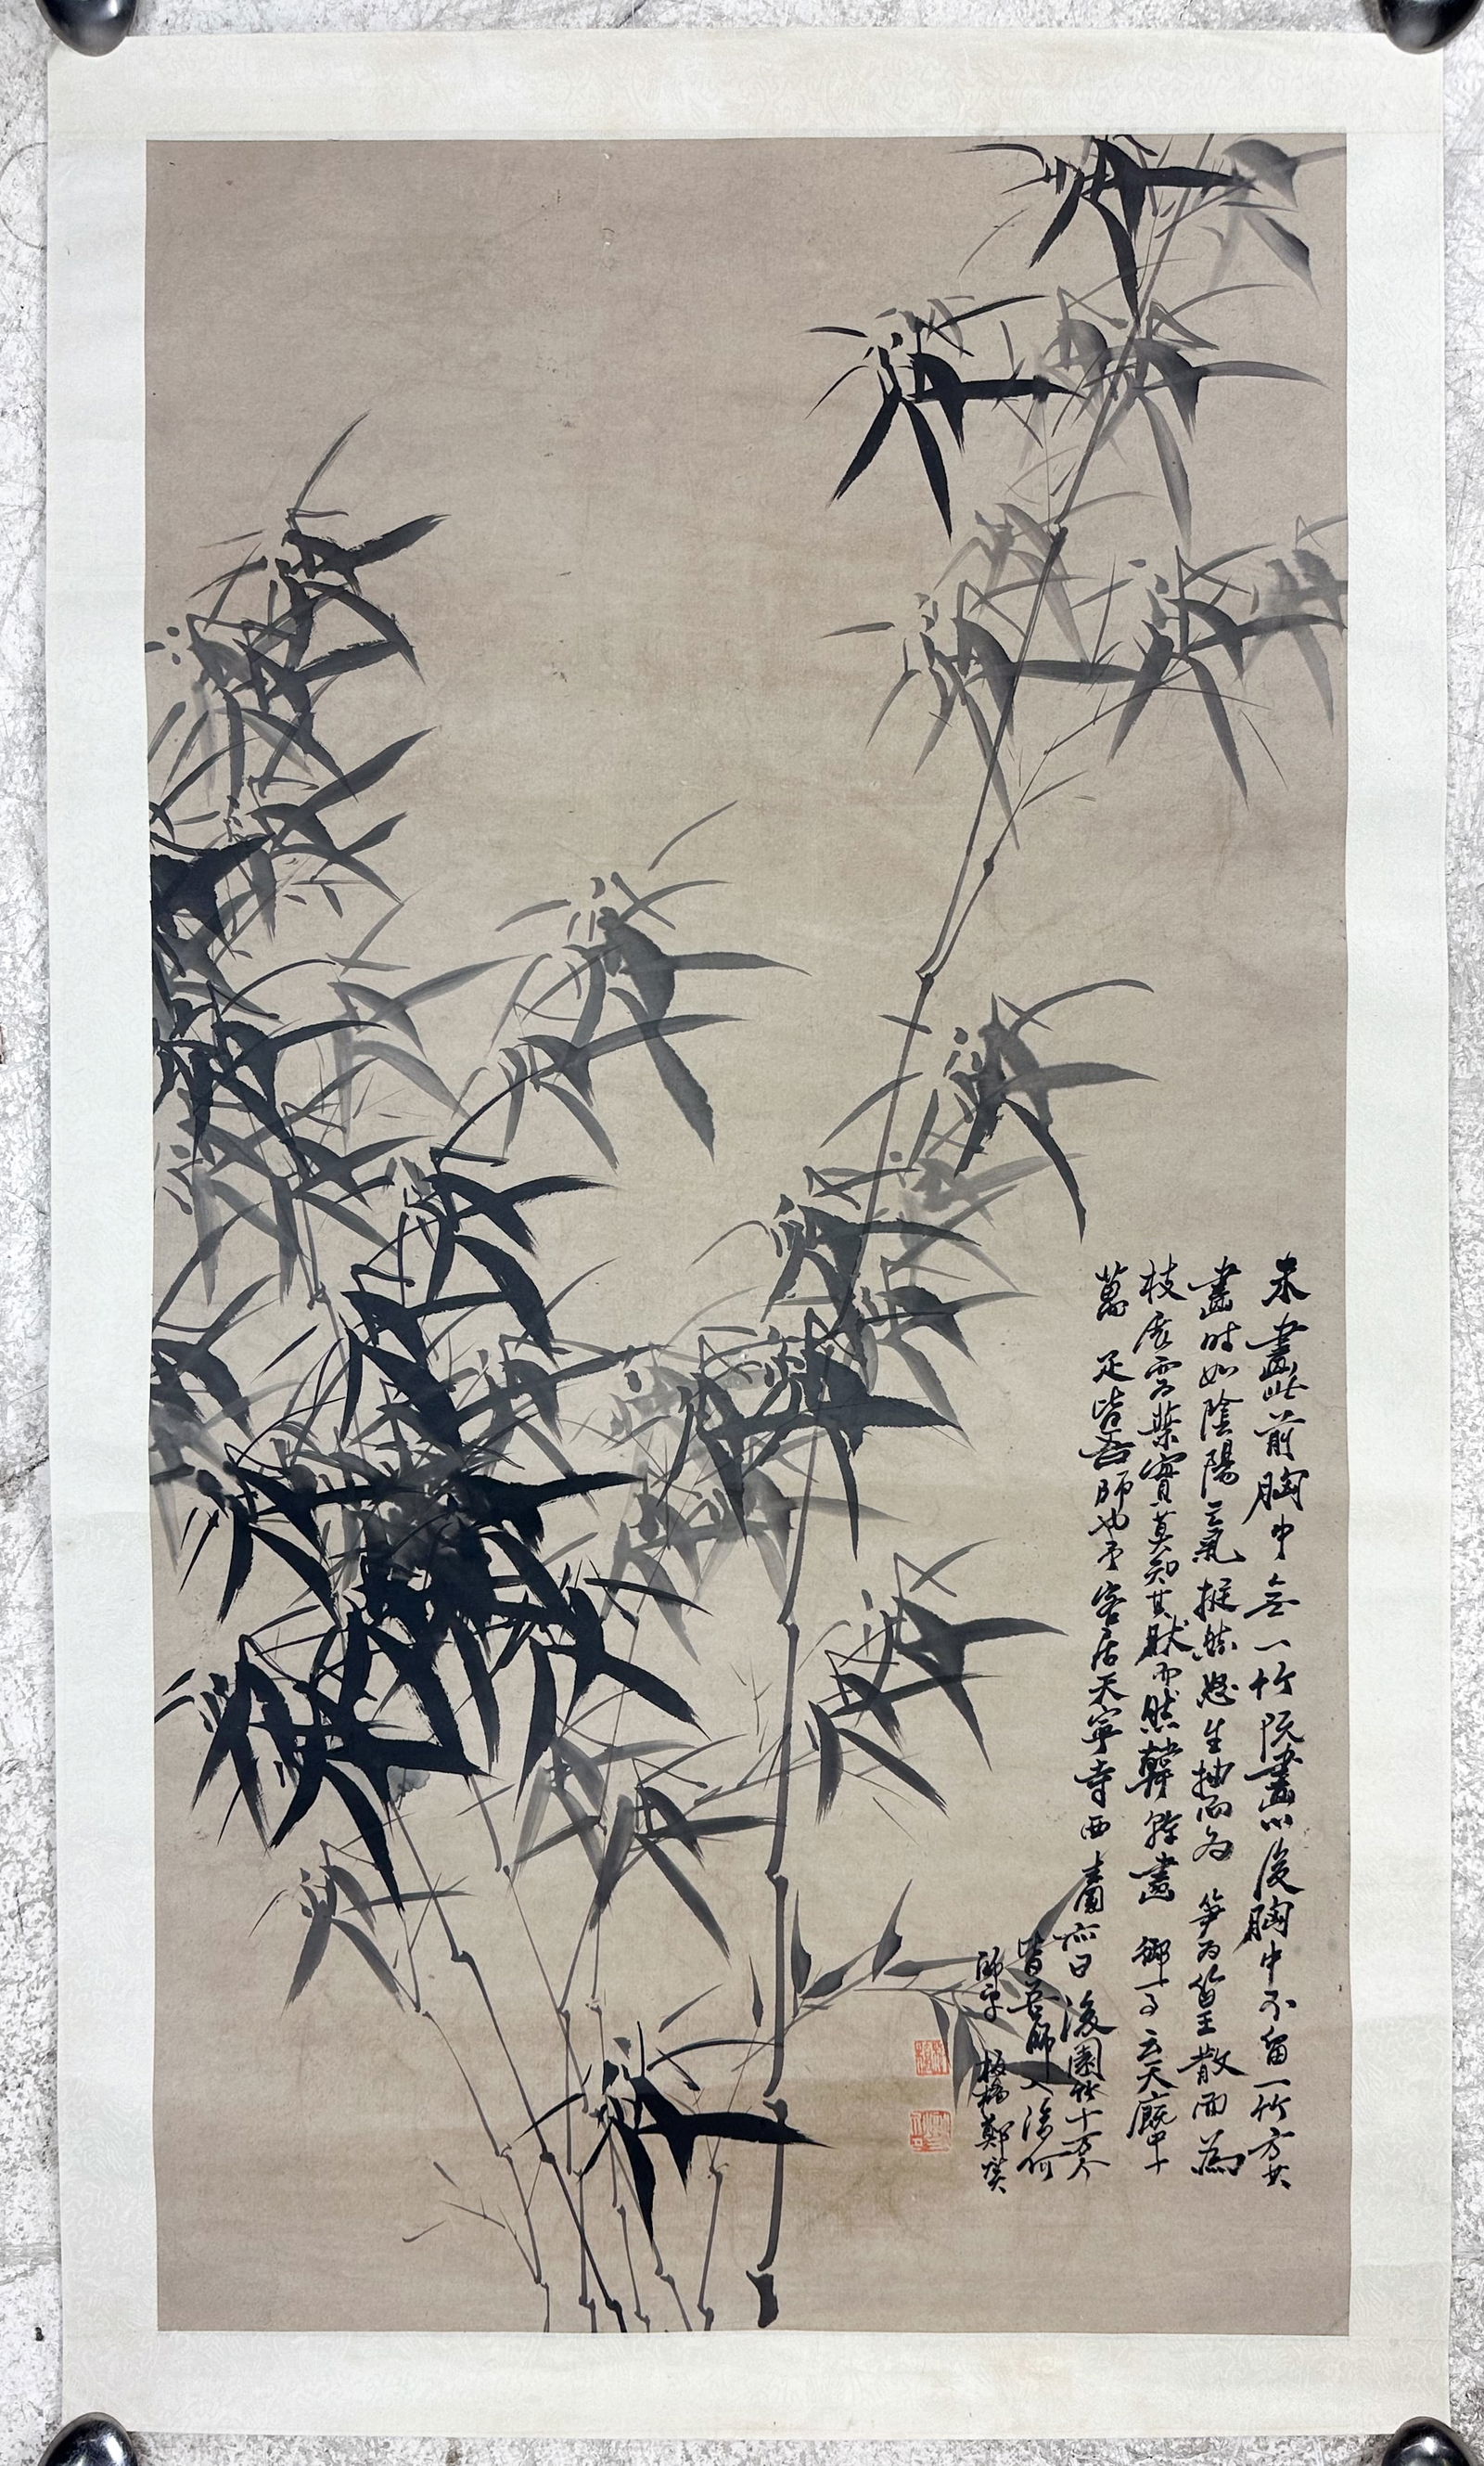 未畫此前胸中無一竹既畫以後胸中不留一竹方其
畫時如陰陽二氣挺然怒生抽而為笋為篁散而為
枝展而為葉實莫知其然而然韓幹畫御馬云天廄中十
萬疋皆吾師也予客居天寧寺西
亦曰後園竹十萬个
皆吾師又復何
師乎 板橋鄭燮